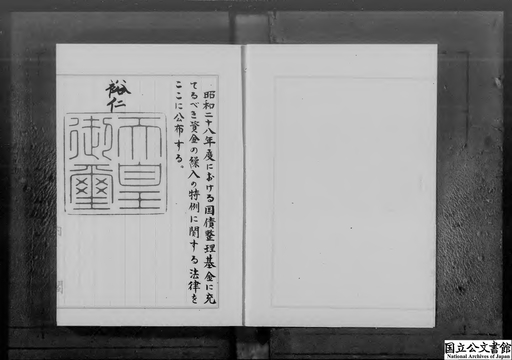 昭和二十八年度における国債整理基金に充
てるべき資金の繰入の特例に関する法律を
ここに公布する。
裕仁
天皇
御璽
国立公文書館
National Archives of Japan